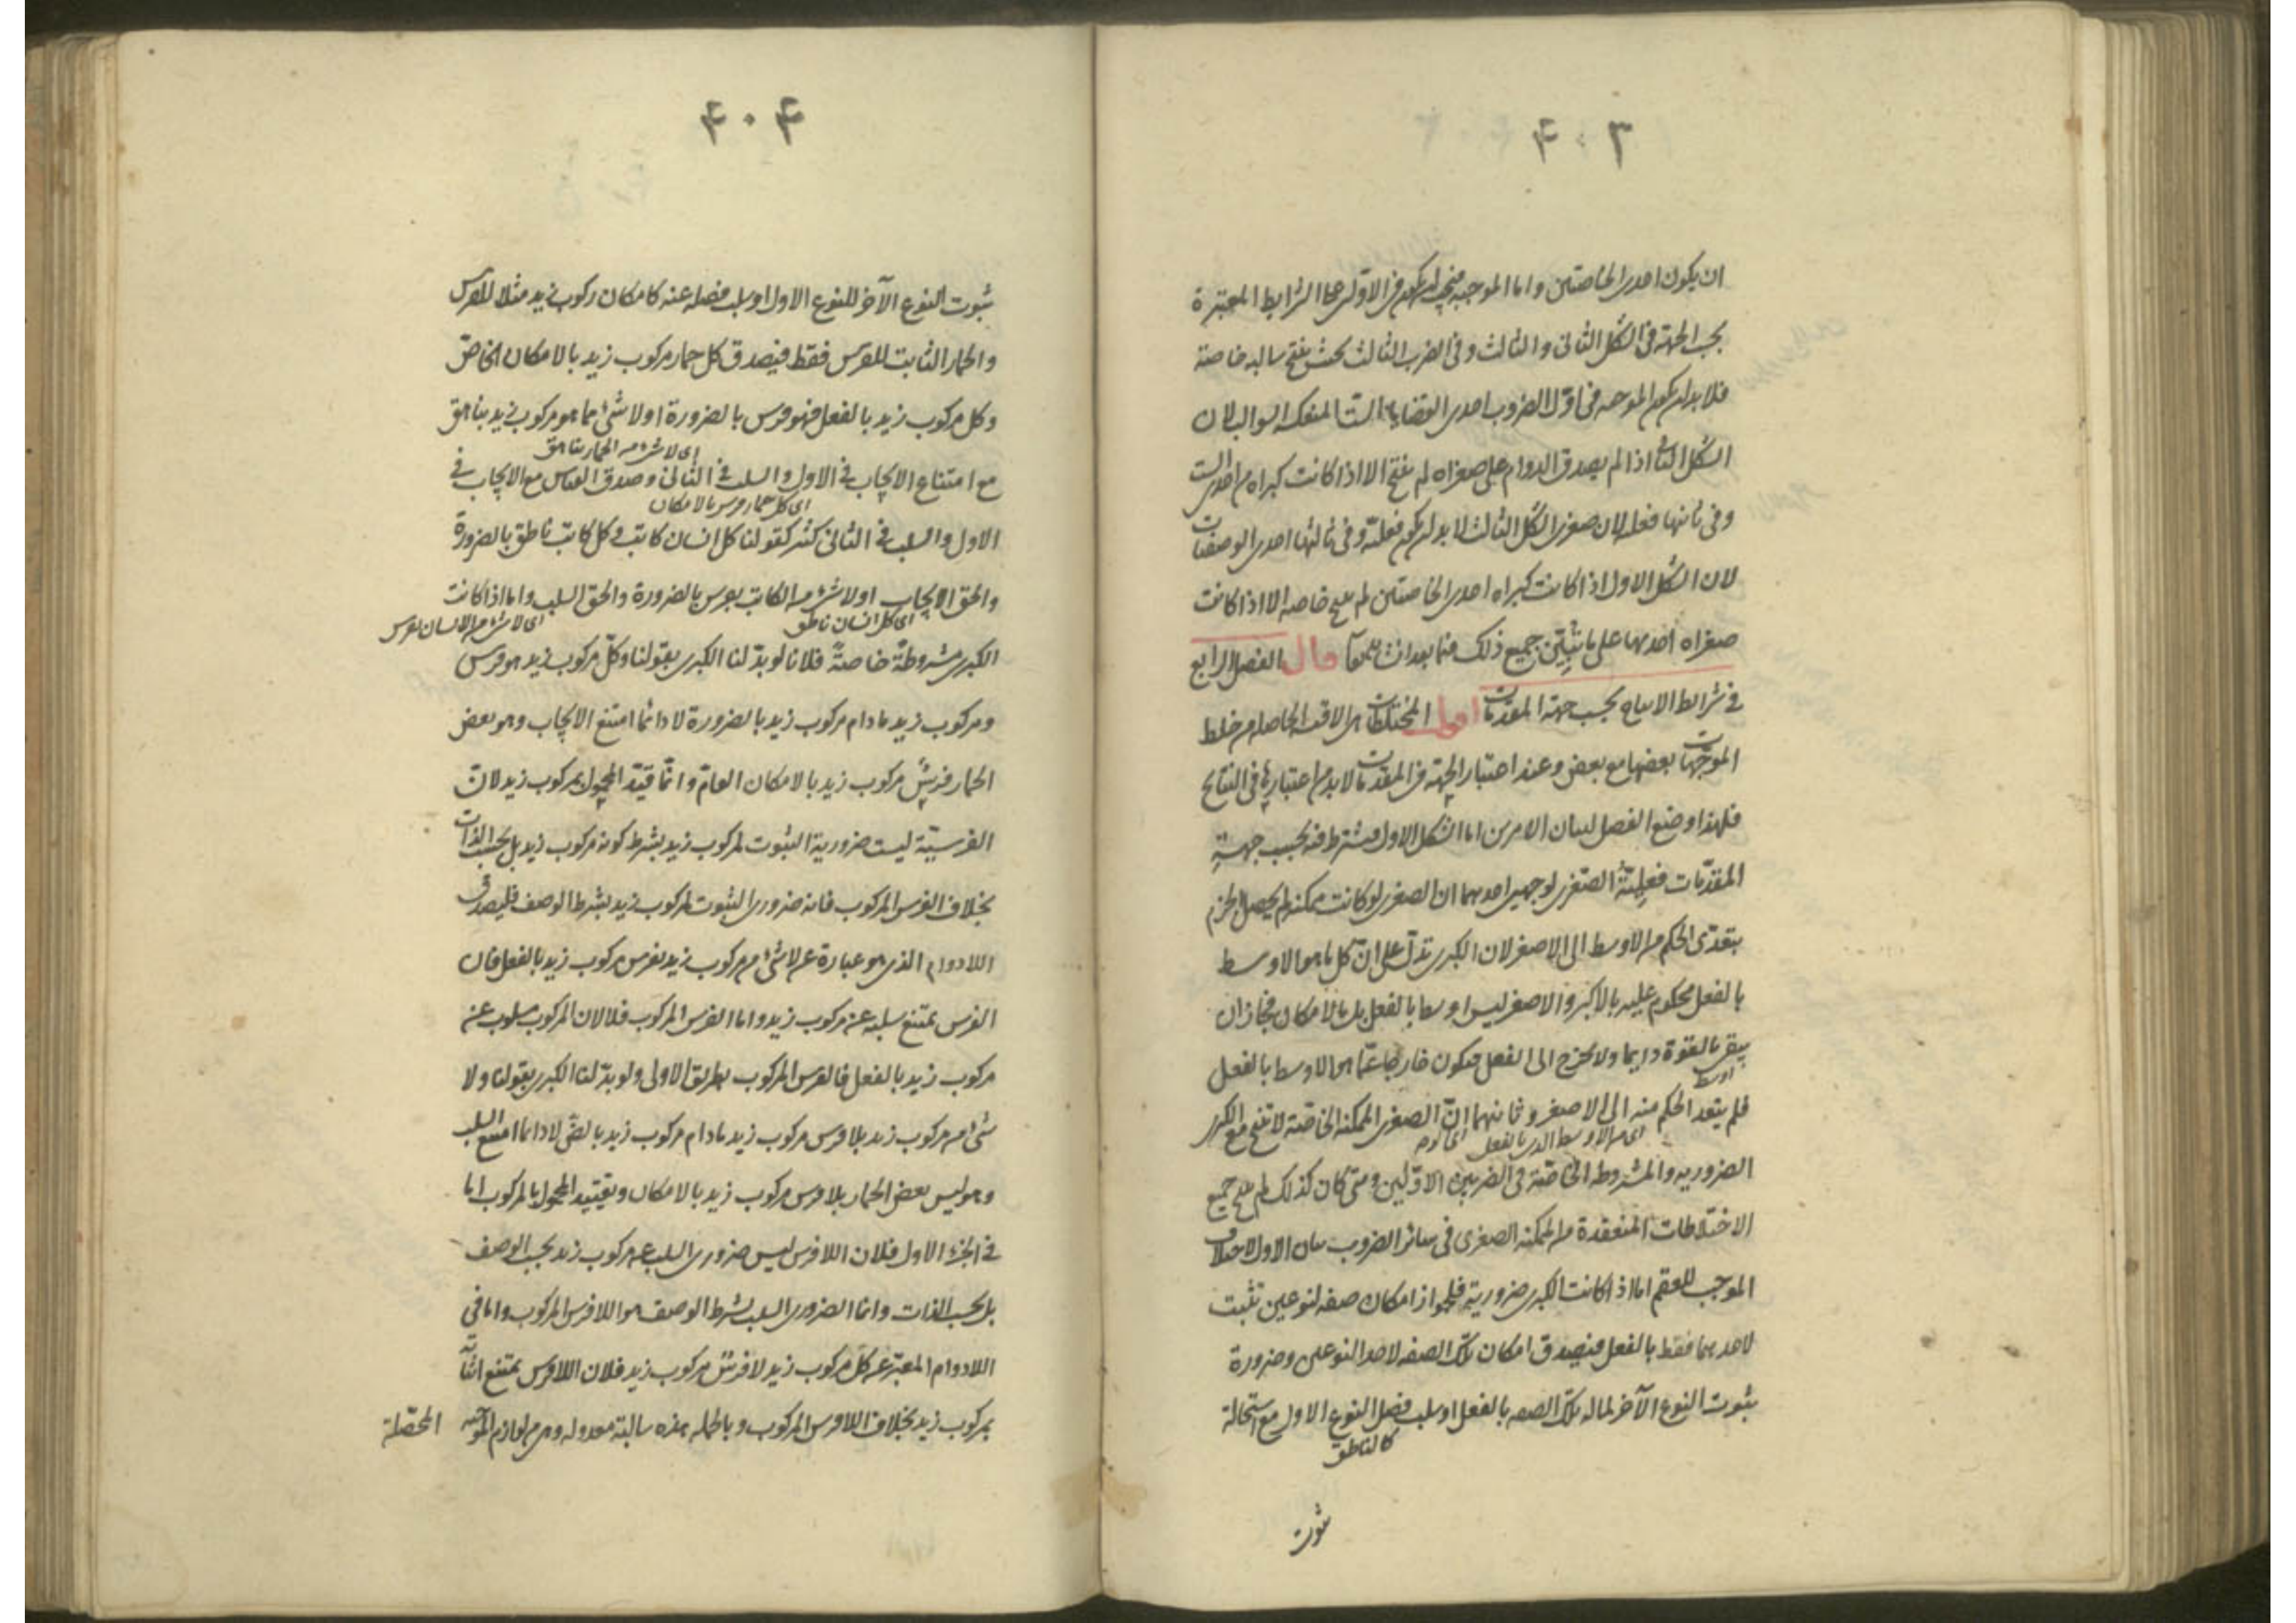 ۴۰۳
ان يكون احدى الخاصتين واما الموجبه فيجب ان يكون فى الاولى على الشرايط المعتبرة
بحسب الجهة فى الشكل الثانى والثالث وفى الضرب الثالث بحيث ينتج سالبه خاصة
فلا بد ان يكون الموجبه فى اول الضروب احدى القضايا الست المنعكسه السوالب لان
الشكل الثانى اذا لم يصدق الدوام على صغراه لم ينتج الا اذا كانت كبراه من احدى الست
وفى ثانيها فعليه لان صغرى الشكل الثالث لا بد ان يكون فعلية وفى ثالثها احدى الوصفيات
لان الشكل الاول اذا كانت كبراه احدى الخاصتين لم ينتج خاصه الا اذا كانت
صغراه احديهما على ما تبين جميع ذلك فيما بعد ان شاء الله تعالى قال الفصل الرابع
فى شرائط الانتاج بحسب جهة المقدمات اقول المختلطات هى الاقيسة الحاصله من خلط
الموجهات بعضها مع بعض وعند اعتبار الجهة فى المقدمات لا بد من اعتبارها فى النتايج
فلهذا وضع الفصل لبيان الامرين اما الشكل الاول فيشترط فيه بحسب جهة
المقدمات فعلية الصغرى لوجهين احدهما ان الصغرى لو كانت ممكنة لم يحصل الجزم
بتعدى الحكم من الاوسط الى الاصغر لان الكبرى تدل على ان كل ما هو الاوسط
بالفعل محكوم عليه بالاكبر والاصغر ليس اوسط بالفعل بل بالامكان فجاز ان
يبقى بالقوة دايما ولا يخرج الى الفعل فيكون خارجا عما هو الاوسط بالفعل
اوسط
فلم يتعد الحكم منه الى الاصغر وثانيهما ان الصغرى الممكنه الخاصة لا تنتج مع الكبرى
اى من الاوسط الذى بالفعل
الضروريه والمشروطه الخاصة فى الضربين الاولين ومتى كان كذلك لم ينتج جميع
الاختلاطات المنعقدة من الممكنه الصغرى فى سائر الضروب بيان الاول الاختلاف
الموجب للعقم اما اذا كانت الكبرى ضرورية فلجواز امكان صفه لنوعين تثبت
لاحدهما فقط بالفعل فيصدق امكان تلك الصفه لاحد النوعين وضرورة
ثبوت النوع الآخر لما له تلك الصفه بالفعل او سلب فصل النوع الاول مع استحالة
كالناطق
ثبوت
۴۰۴
ثبوت النوع الآخر للنوع الاول او سلب فصله عنه كامكان ركوب زيد مثلا للفرس
والحمار الثابت للفرس فقط فيصدق كل حمار مركوب زيد بالامكان الخاص
وكل مركوب زيد بالفعل فهو فرس بالضرورة او لا شئ مما هو مركوب زيد بناهق
اى لا شئ من الحمار بناهق
مع امتناع الايجاب فى الاول والسلب فى الثانى وصدق القياس مع الايجاب فى
اى كل حمار فرس بالامكان
الاول والسلب فى الثانى كثير كقولنا كل انسان كاتب وكل كاتب ناطق بالضرورة
والحق الايجاب او لا شئ من الكاتب بفرس بالضرورة والحق السلب واما اذا كانت
اى كل انسان ناطق
اى لا شئ من الانسان بفرس
الكبرى مشروطة خاصة فلانا لو بدلنا الكبرى بقولنا وكل مركوب زيد هو فرس
ومركوب زيد ما دام مركوب زيد بالضرورة لا دائما امتنع الايجاب وهو بعض
الحمار فرس مركوب زيد بالامكان العام وانما قيد المحمول بمركوب زيد لان
الفرسية ليست ضرورية الثبوت لمركوب زيد بشرط كونه مركوب زيد بل بحسب الذات
بخلاف الفرس المركوب فانه ضرورى الثبوت لمركوب زيد بشرط الوصف فليصدق
اللادوام الذى هو عبارة عن لا شئ من مركوب زيد بفرس مركوب زيد بالفعل فان
الفرس يمتنع سلبه عن مركوب زيد واما الفرس المركوب فلا لان المركوب مسلوب عن
مركوب زيد بالفعل فالفرس المركوب بطريق الاولى ولو بدلنا الكبرى بقولنا ولا
شئ من مركوب زيد بلا فرس مركوب زيد ما دام مركوب زيد بالضرورة لا دائما امتنع السلب
وهو ليس بعض الحمار بلا فرس مركوب زيد بالامكان وتقييد المحمول بالمركوب اما
فى الجزء الاول فلان اللافرس ليس ضرورى السلب عن مركوب زيد بحسب الوصف
بل بحسب الذات وانما الضرورى السلب بشرط الوصف هو اللافرس المركوب واما فى
اللادوام المعبر عن كل مركوب زيد لا فرس مركوب زيد فلان اللافرس يمتنع اثباته
بمركوب زيد بخلاف اللافرس المركوب وبالجمله هذه سالبة معدوله وهى من لوازم الموجبه المحصلة